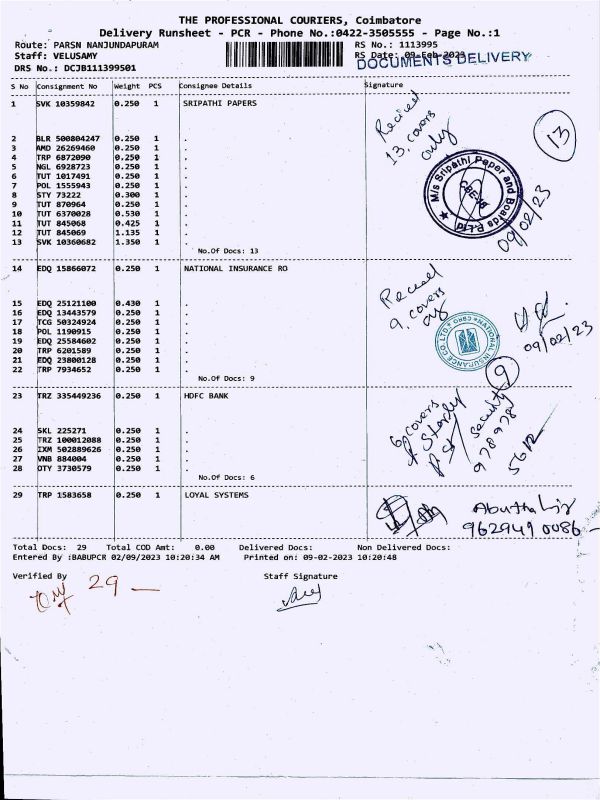 THE PROFESSIONAL COURIERS, Coimbatore
Delivery Runsheet - PCR - Phone No.:0422-3505555 - Page No.:1
Route: PARSN NANJUNDAPURAM RS No.: 1113995
Staff: VELUSAMY RS Date: 09-Feb-2023
DOCUMENTS DELIVERY
DRS No.: DCJB111399501
S No Consignment No Weight PCS Consignee Details Signature
1 SVK 10359842 0.250 1 SRIPATHI PAPERS
2 BLR 500804247 0.250 1 .
3 AMD 26269460 0.250 1 .
4 TRP 6872090 0.250 1 .
5 NGL 6928723 0.250 1 .
6 TUT 1017491 0.250 1 .
7 POL 1555943 0.250 1 .
8 STY 73222 0.300 1 .
9 TUT 870964 0.250 1 .
10 TUT 6370028 0.530 1 .
11 TUT 845068 0.425 1 .
12 TUT 845069 1.135 1 .
13 SVK 10360682 1.350 1 .
No.Of Docs: 13
13 covers
only
13
M/s Sripathi Paper and Boards P.Ltd
09/02/23
14 EDQ 15866072 0.250 1 NATIONAL INSURANCE RO
15 EDQ 25121100 0.430 1 .
16 EDQ 13443579 0.250 1 .
17 TCG 50324924 0.250 1 .
18 POL 1190915 0.250 1 .
19 EDQ 25584602 0.250 1 .
20 TRP 6201589 0.250 1 .
21 EDQ 23800128 0.250 1 .
22 TRP 7934652 0.250 1 .
No.Of Docs: 9
9. covers
NATIONAL INSURANCE CO LTD
09/02/23
9
23 TRZ 335449236 0.250 1 HDFC BANK
24 SKL 225271 0.250 1 .
25 TRZ 100012088 0.250 1 .
26 IXM 502889626 0.250 1 .
27 VNB 884004 0.250 1 .
28 OTY 3730579 0.250 1 .
No.Of Docs: 6
6 covers
security
29 TRP 1583658 0.250 1 LOYAL SYSTEMS
Total Docs: 29 Total COD Amt: 0.00 Delivered Docs: Non Delivered Docs:
Entered By :BABUPCR 02/09/2023 10:20:34 AM Printed on: 09-02-2023 10:20:48
Verified By Staff Signature
29 —